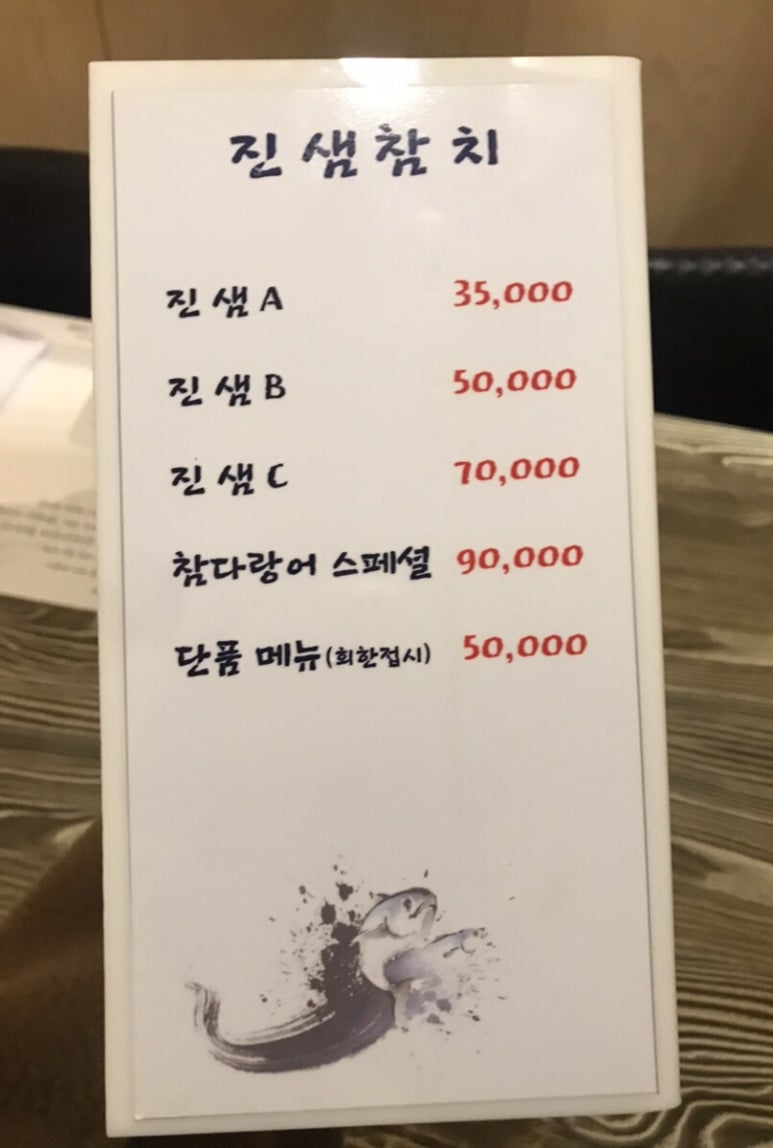 진샘참치
진샘A 35,000
진샘B 50,000
진샘C 70,000
참다랑어 스페셜 90,000
단품 메뉴(회한접시) 50,000